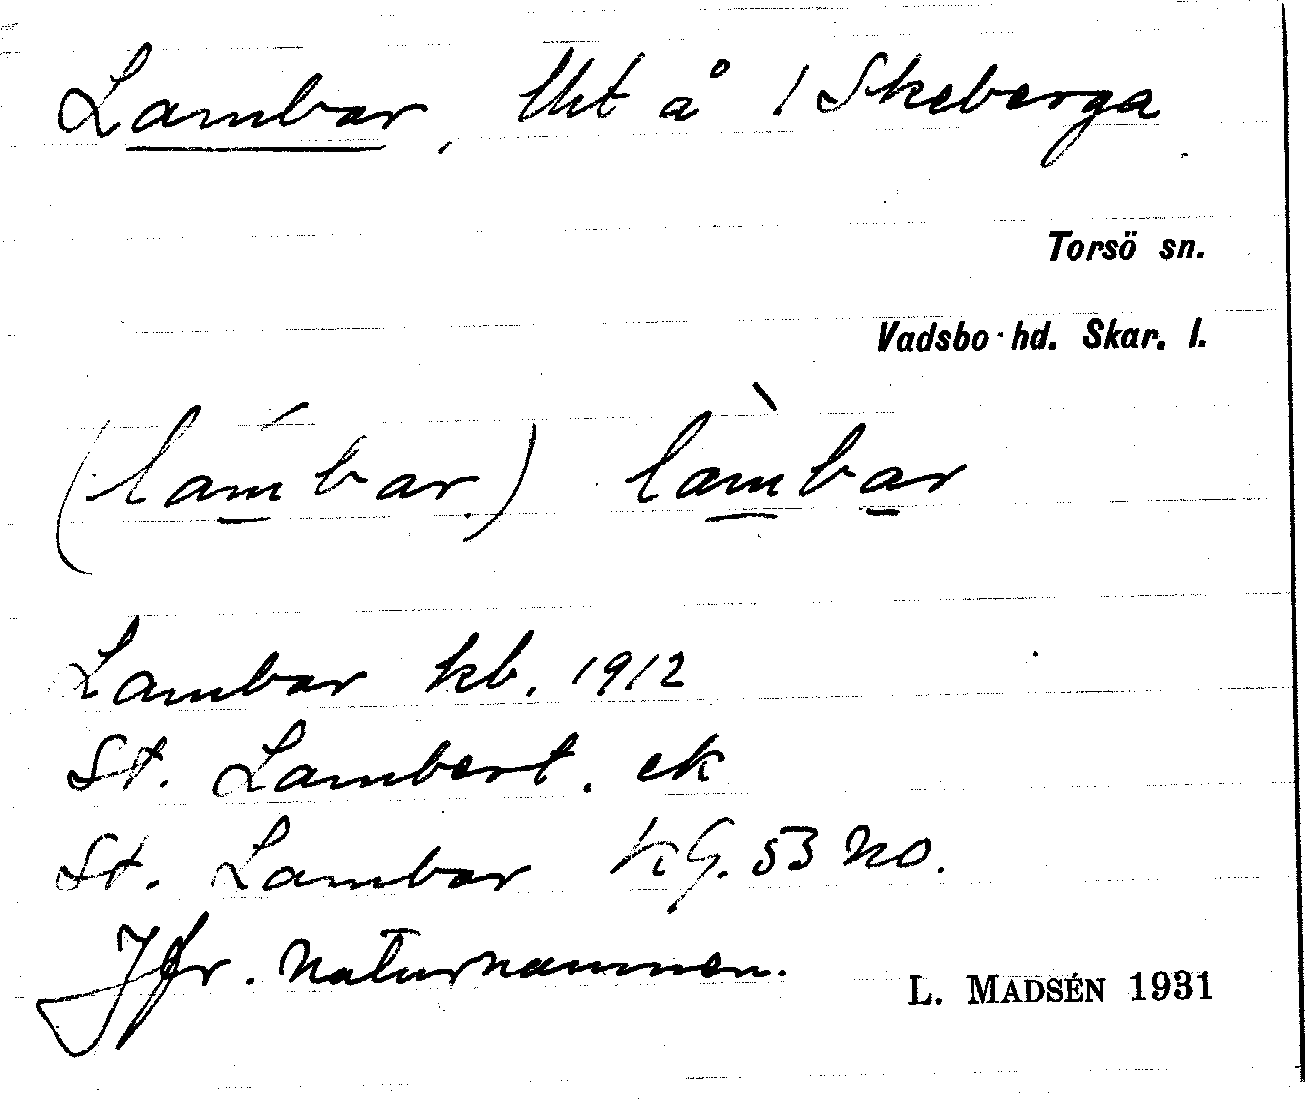 Lambar, Uxt å 1 Skeberga
Torsö sn.
Vadsbo hd. Skar. l.
(lámbar) làmbàr
Lambar kb. 1912
St. Lambert. ek
St. Lambar KG. 53 no.
Jfr. naturnamnen.
L. MADSÉN 1931